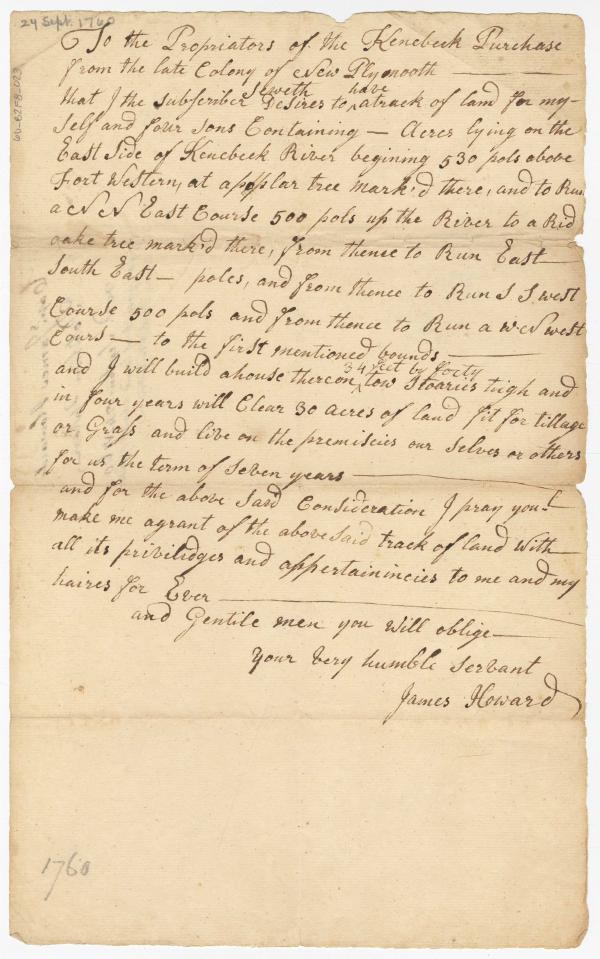 24 Sept. 1760
To the Propriators of the Kenebeck Purchase
from the late Colony of New Plymooth
that I the subscriber Seweth Desires to have a track of land for my-
self and four sons Containing — Acres lying on the
East Side of Kenebeck River begining 530 pols above
Fort Western, at a popplar tree mark'd there, and to Run
a N N East Course 500 pols up the River to a Rid
oake tree mark'd there, from thence to Run East
South East — poles, and from thence to Run S S. west
Course 500 pols and from thence to Run a w N west
Cours — to the first mentioned bounds
and I will build a house thereon 34 feet by forty tow Stoaries high and
in four years will Clear 30 acres of land fit for tillage
or Grass and live on the premiscies our selves or others
for us the term of seven years
and for the above said Consideration I pray you
make me agrant of the above said track of land with
all its priviledges and appertainincies to me and my
haires for Ever
and Gentile men you will oblige
your very humble servant
James Howard
1760